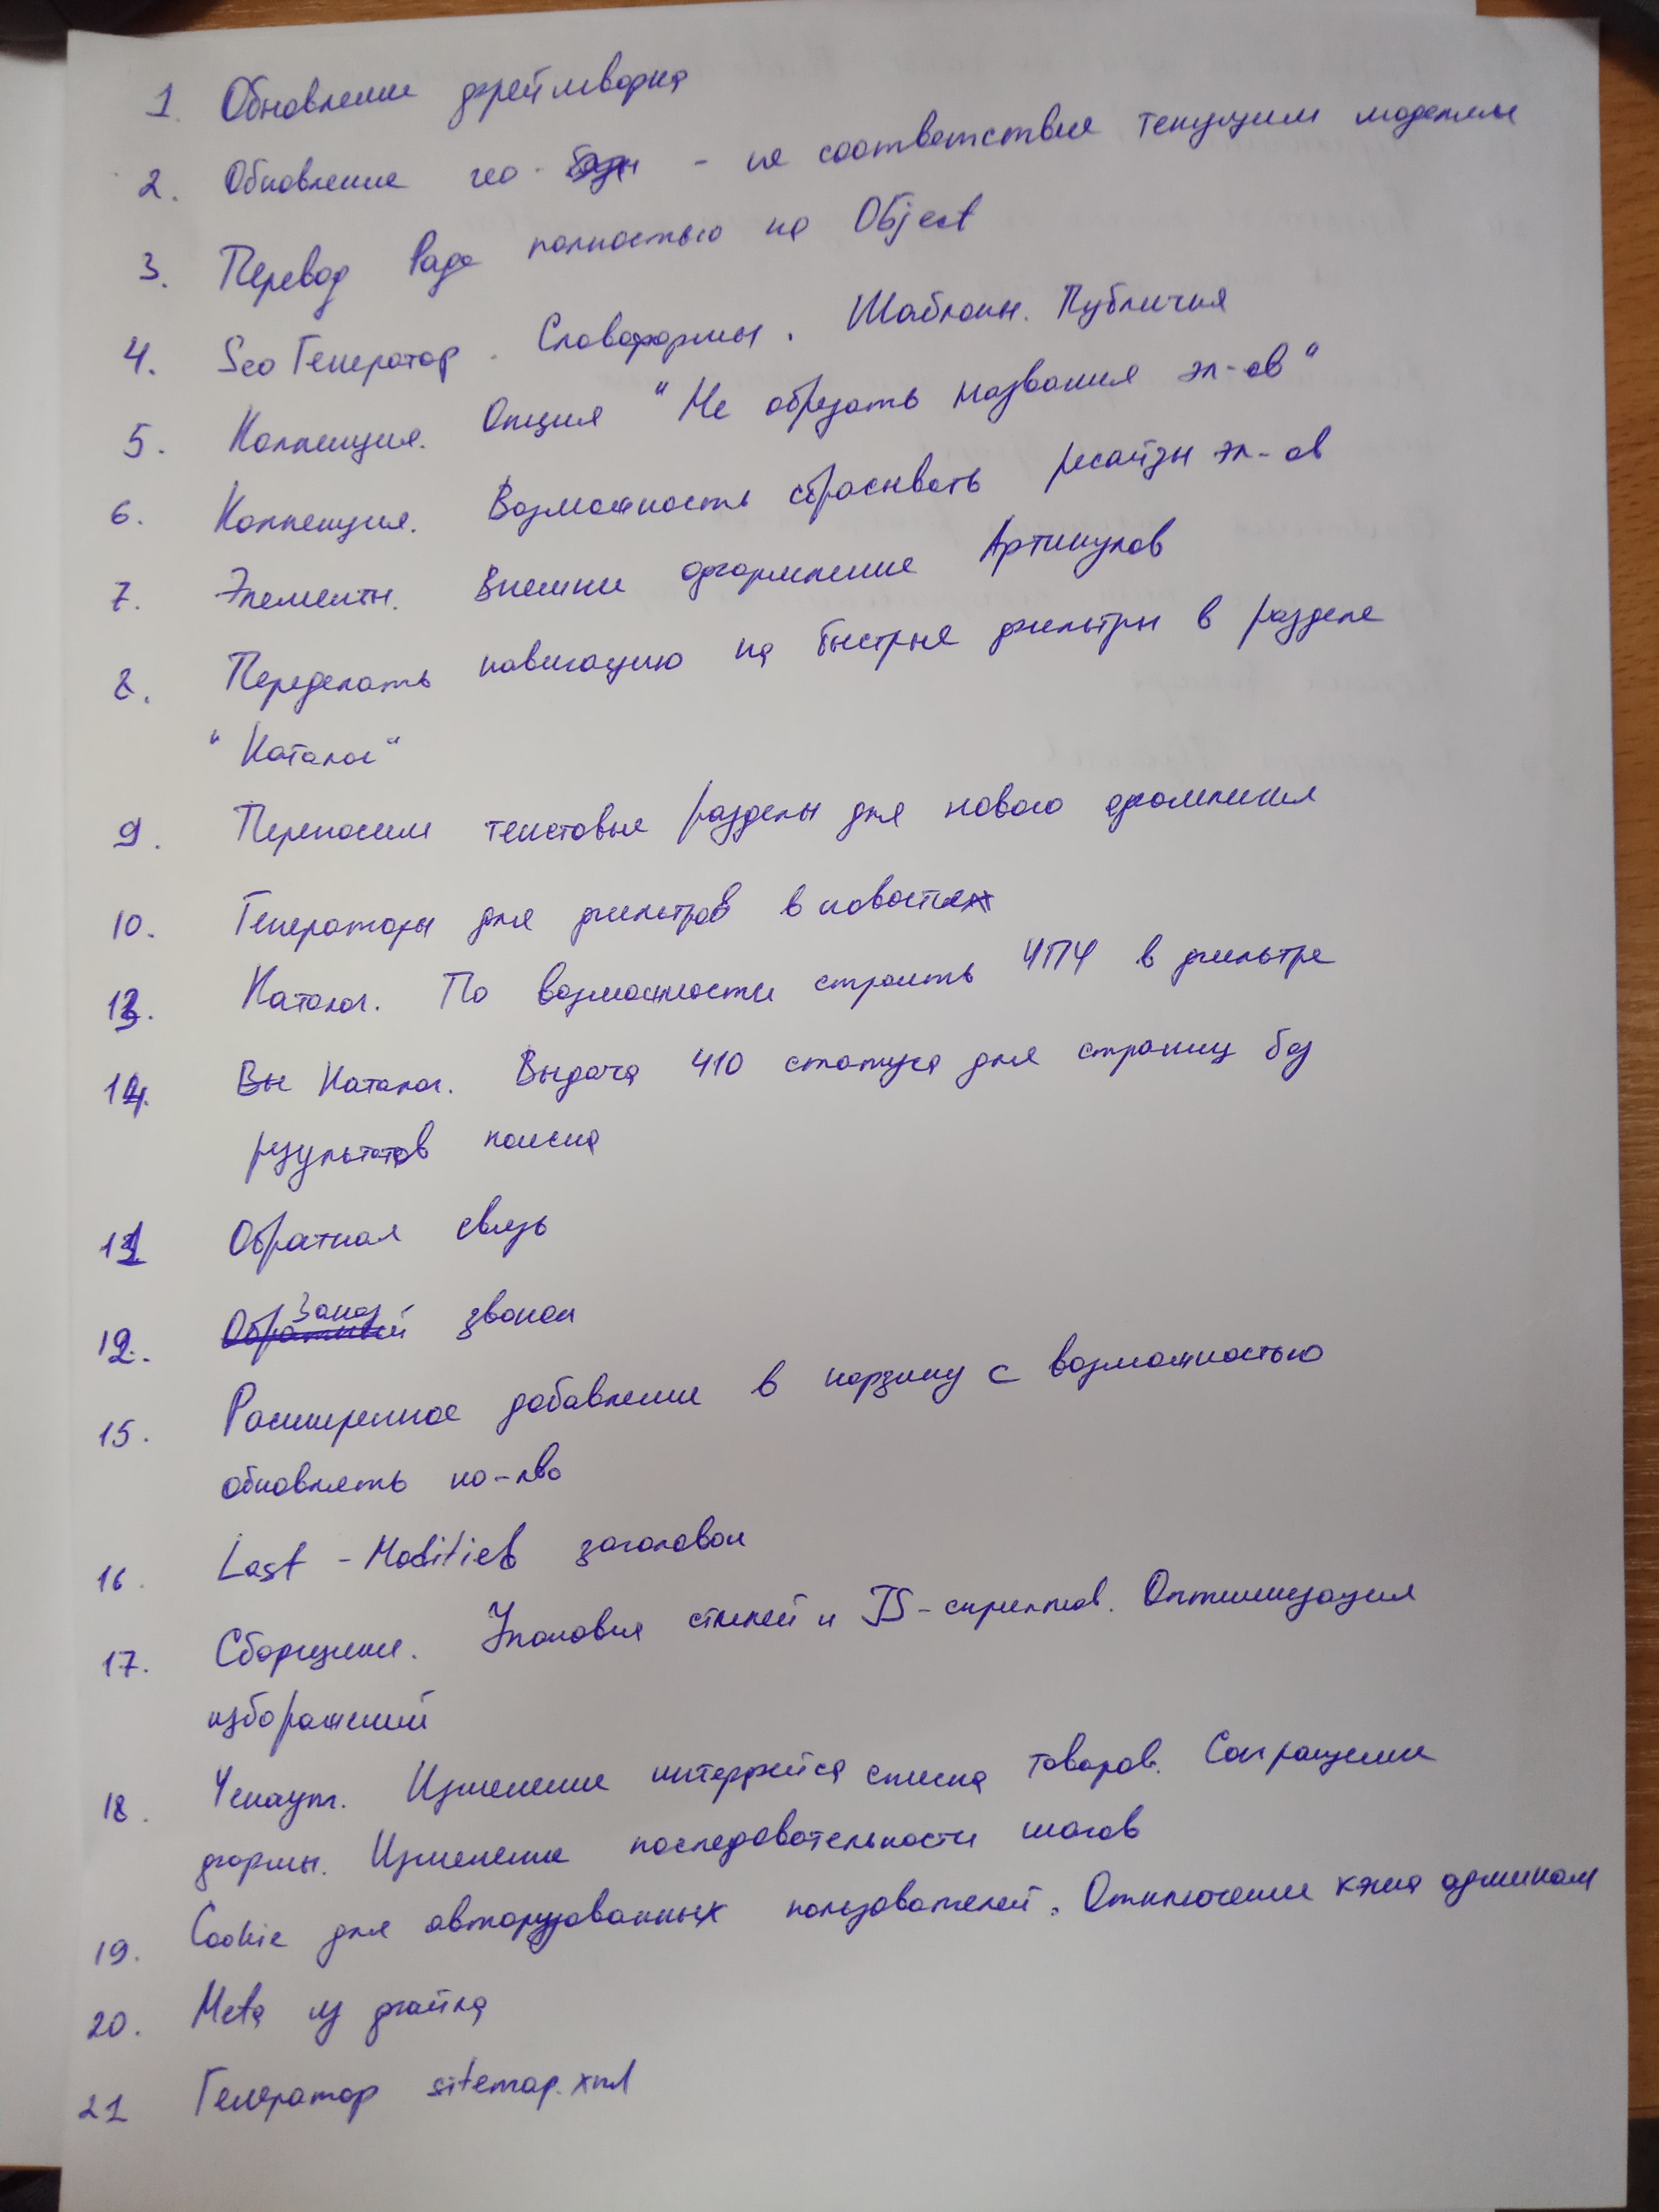 1. Обновление фреймворка
2. Обновление гео - на соответствие текущим моделям
3. Перевод Page полностью на Object
4. Seo Генератор. Словоформы. Шаблоны. Публичка
5. Коллекция. Опция "Не обрезать названия эл-ов"
6. Коллекция. Возможность сбрасывать ресайзы эл-ов
7. Элементы. Внешнее оформление Артикулов
8. Переделать навигацию на быстрые фильтры в разделе
"Каталог"
9. Переносим текстовые разделы для нового оформления
10. Генераторы для фильтров в новостях
13. Каталог. По возможности строить ЧПУ в фильтре
14. Вы Каталог. Выдача 410 статуса для страниц без
результатов поиска
11 Обратная связь
12. Обратный Заказ звонок
15. Расширенное добавление в корзину с возможностью
обновлять ко-лво
16. Last-Modified заголовок
17. Сборщики. Упаковка стилей и JS-скриптов. Оптимизация
изображений
18. Чекаут. Изменение интерфейса списка товаров. Сокращение
формы. Изменение последовательности шагов
19. Cookie для авторизованных пользователей. Отключение кэша админам
20. Meta из файла
21 Генератор sitemap.xml